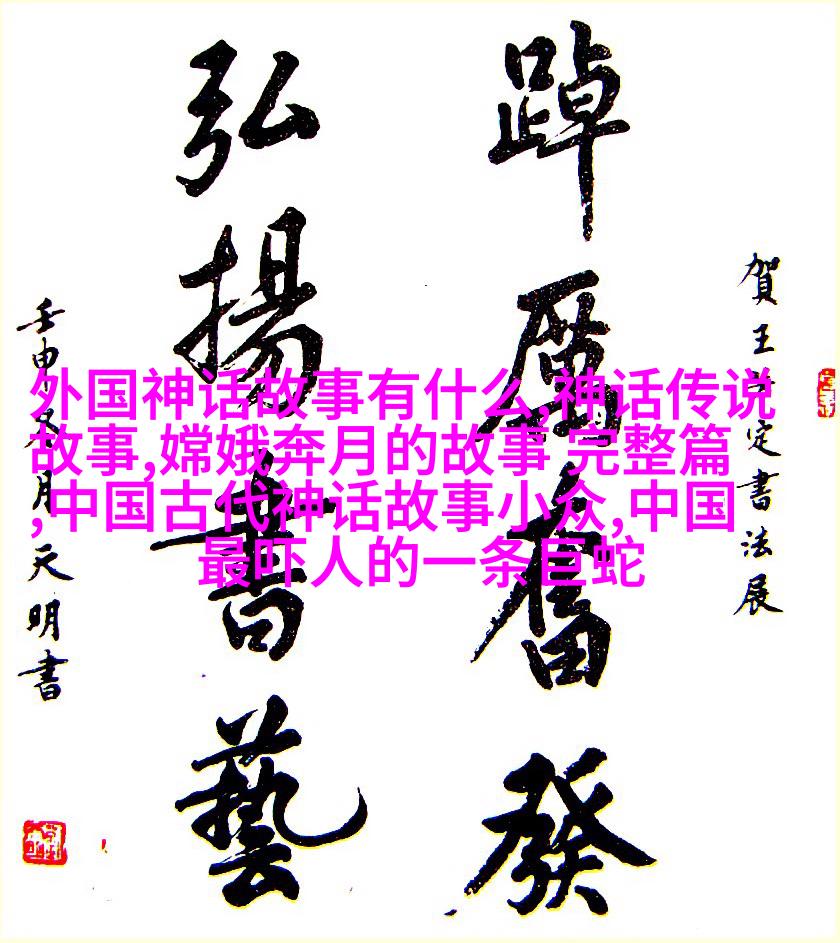 賀王定書法展
踔厲奮發
弘揚書藝
壬申冬月天明書
外国神话故事有什么,神话传说
故事,嫦娥奔月的故事 完整篇
,中国古代神话故事小众,中国
最吓人的一条巨蛇